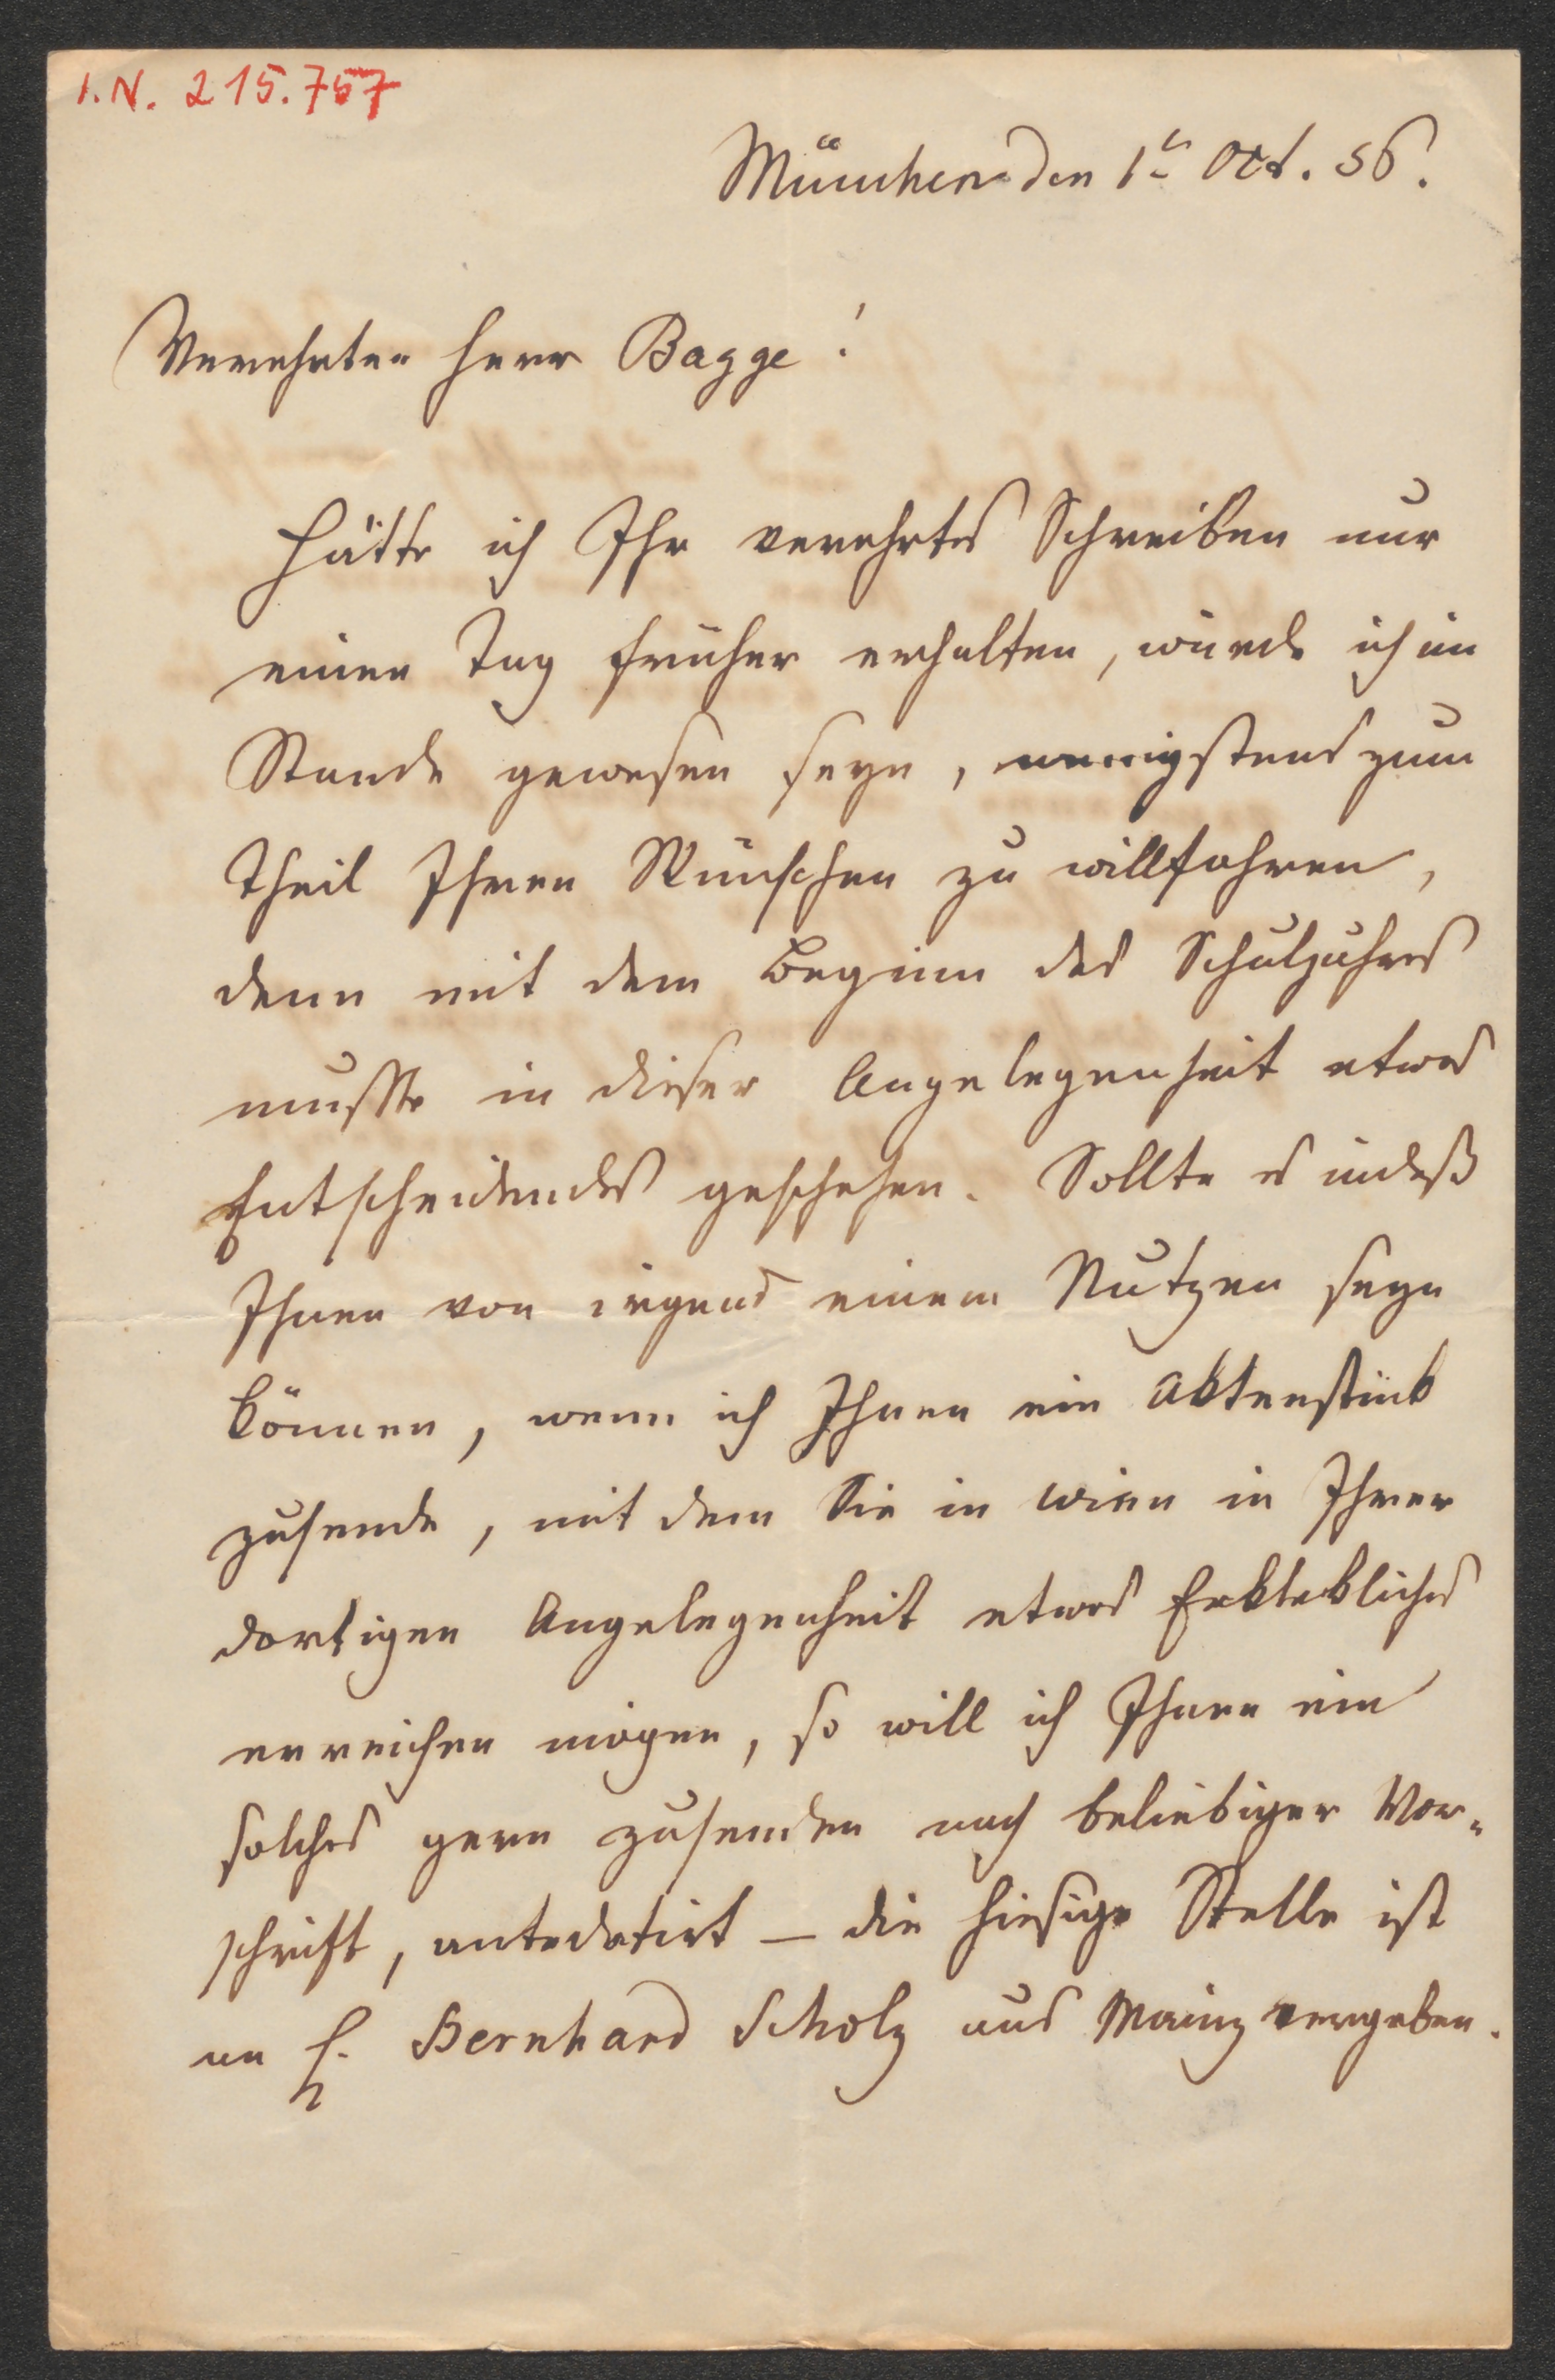 I.N. 215.757
München den 1t Oct. 56.
Verehrter Herr Bagge!
Hätte ich Ihr verehrtes Schreiben nur
einen Tag früher erhalten, würde ich im
Stande gewesen seyn, wenigstens zum
Theil Ihren Wünschen zu willfahren,
denn mit dem Beginn des Schuljahres
mußte in dieser Angelegenheit etwas
Entscheidendes geschehen. Sollte es indeß
Ihnen von irgend einem Nutzen seyn
können, wenn ich Ihnen ein Aktenstück
zusende, mit dem Sie in Wien in Ihrer
dortigen Angelegenheit etwas
erreichen mögen, so will ich Ihnen ein
solches gern zusenden nach beliebiger Vor-
schrift, antedatirt – die hiesige Stelle ist
an H. Bernhard Scholz aus Mainz vergeben.